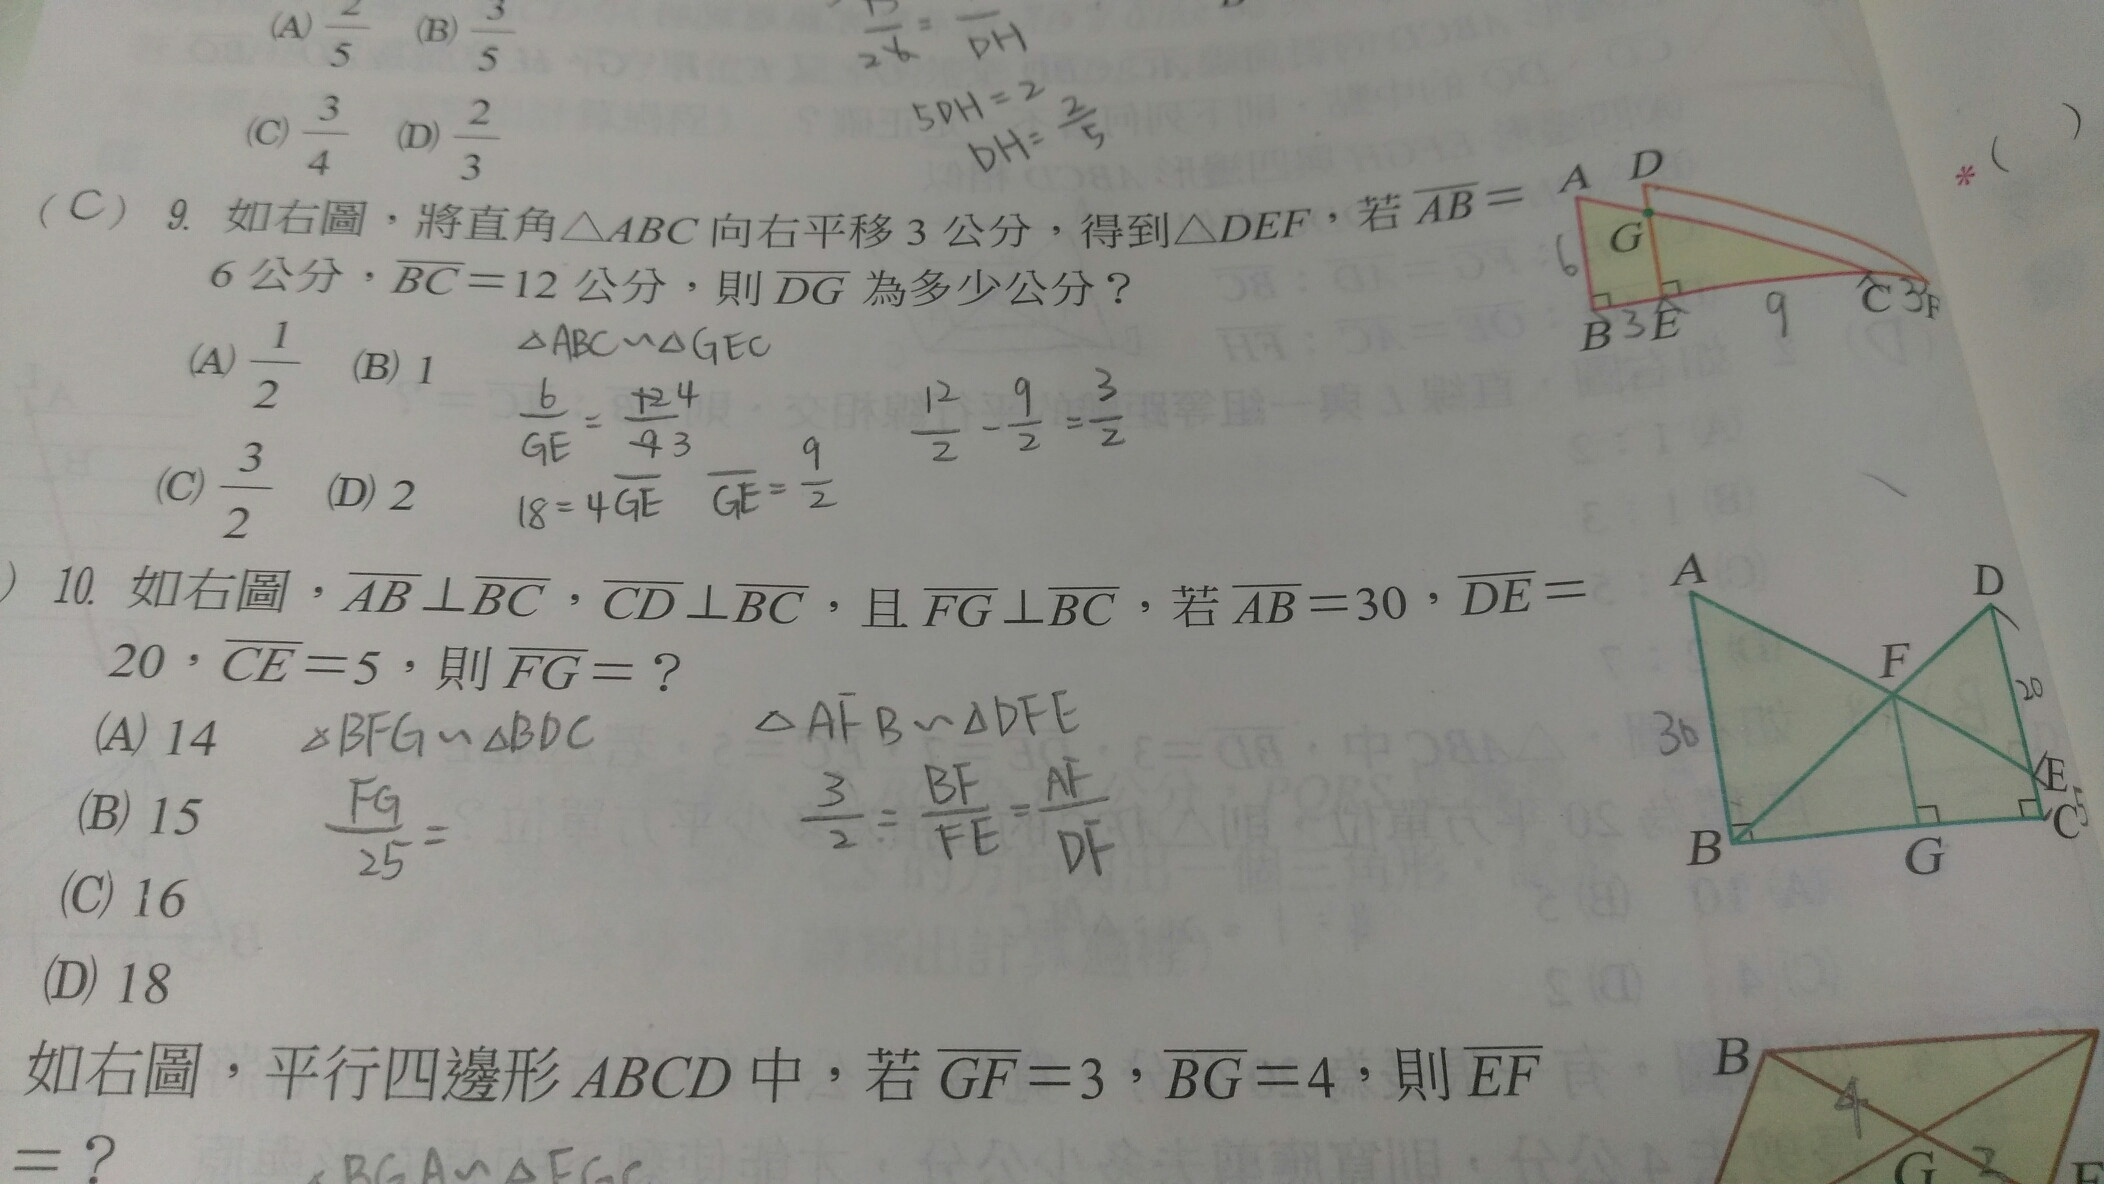 (A) 2/5 (B) 3/5
(C) 3/4 (D) 2/3
5DH=2
DH=2/5
(C) 9. 如右圖，將直角△ABC 向右平移 3 公分，得到△DEF，若 AB=
6 公分，BC=12 公分，則 DG 為多少公分？
(A) 1/2 (B) 1
(C) 3/2 (D) 2
△ABC∽△GEC
6/GE = 12/9 4/3
18=4GE GE=9/2
12/2 - 9/2 = 3/2
A D
G
6
B 3 E 9 C 3 F
* ( )
) 10. 如右圖，AB⊥BC，CD⊥BC，且 FG⊥BC，若 AB=30，DE=
20，CE=5，則 FG=？
(A) 14
(B) 15
(C) 16
(D) 18
△BFG∽△BDC
FG/25 =
△AFB∽△DFE
3/2 = BF/FE = AF/DF
A D
F
30 20
E 5
B G C
如右圖，平行四邊形 ABCD 中，若 GF=3，BG=4，則 EF
=？
△BGA∽△FGC
B
4
G 2 F